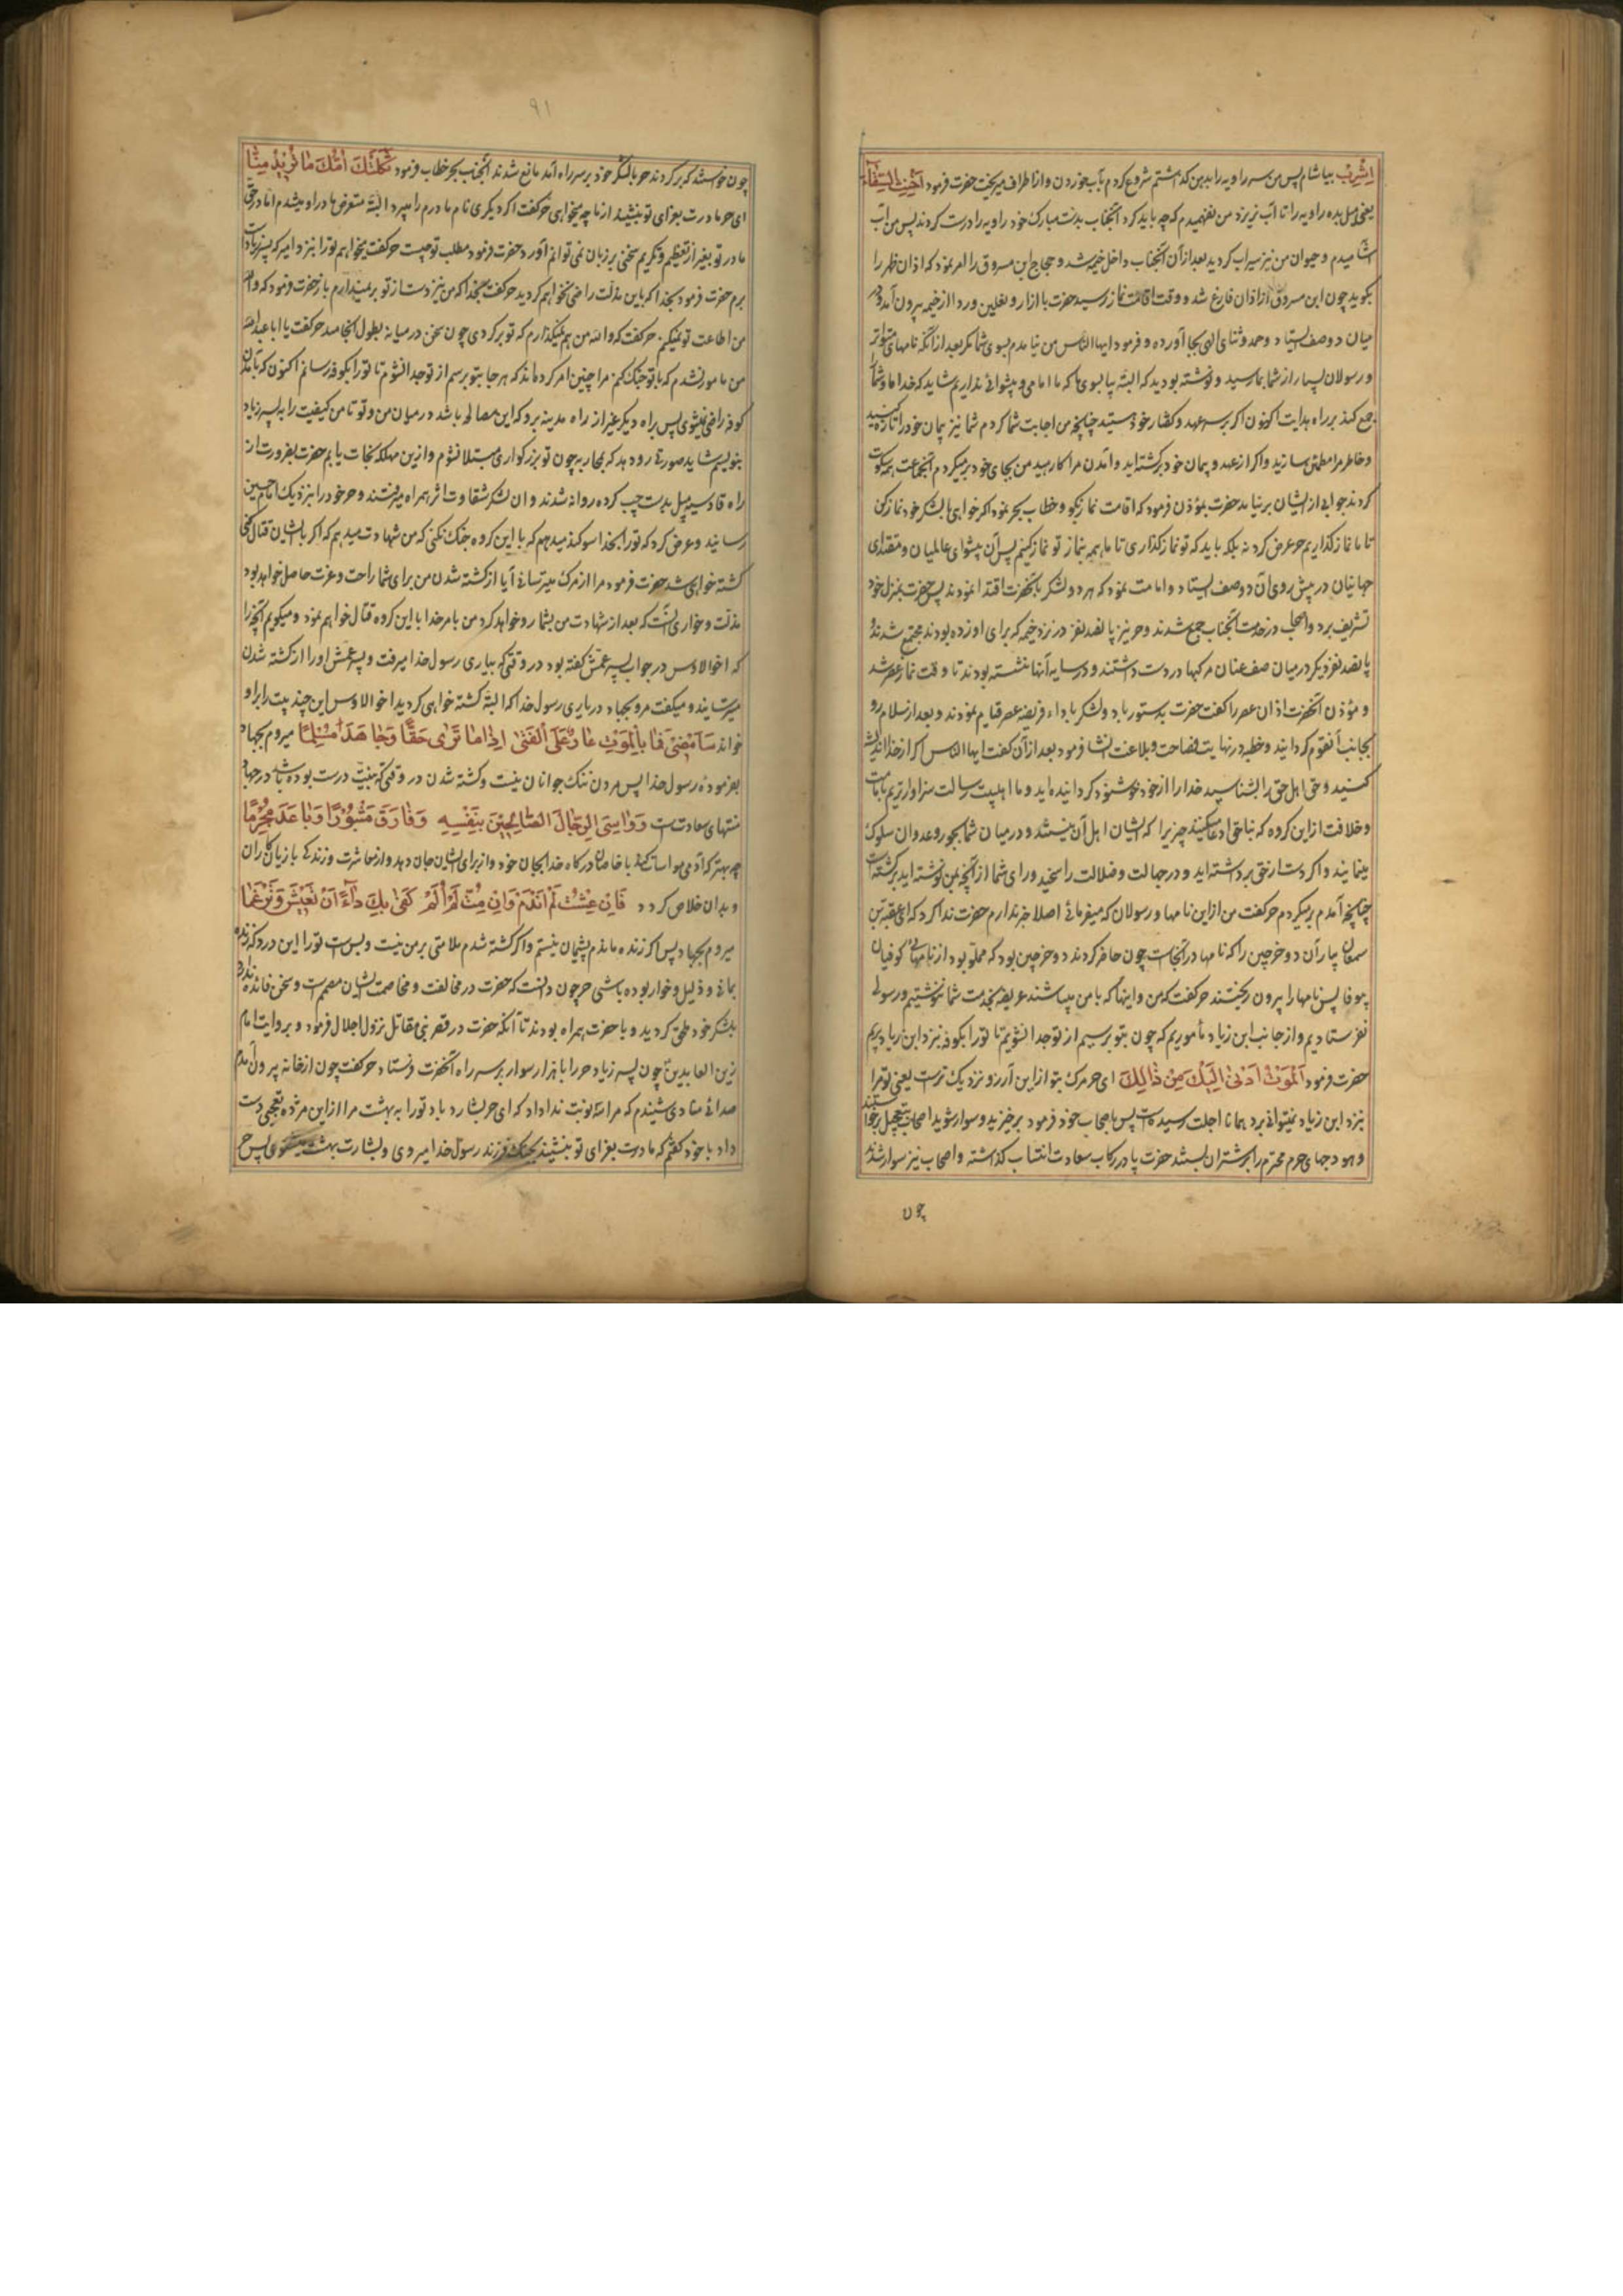 اِشْرِبْ بیاشام پس من سر راویه را بدهن کذاشتم شروع کردم بآب خوردن و از اطراف میریخت حضرت فرمود اَخْنِثِ السِّقٰآءَ
یعنی میل بده راویه را تا آب نریزد من نفهمیدم که چه باید کرد آنجناب بدست مبارک خود راویه را درست کردند پس من آب
اشامیدم و حیوان من نیز سیراب کردید بعد از آن آنجناب داخل خیمه شد و حجاج ابن مسروق را امر نمود که اذان ظهر را
بکوید چون ابن مسروق از اذان فارغ شد و وقت اقامت نماز رسید حضرت با ازار و نعلین و ردا از خیمه بیرون آمد و در
میان دو صف بیستاد و حمد و ثنای الهی بجا آورده و فرمود ایها الناس من نیامدم بسوی شما مکر بعد از آنکه نامهای متواتر
و رسولان بسیار از شما بما رسید و نوشته بودید که البته بیا بسوی ما که ما امامی و پیشوائی نداریم شاید که خدا ما و شما را
جمع کند بر راه هدایت اکنون اکر بر سر عهد و کفتار خود هستید چنانچه من اجابت شما کردم شما نیز پیمان خود را تازه کنید
و خاطر مرا مطمئن سازید و اکر از عهد و پیمان خود برکشته اید و آمدن مرا کارهید من بجای خود برمیکردم آنجماعت همه سکوت
کردند جوابی از ایشان برنیامد حضرت بمؤذن فرمود که اقامت نماز بکو و خطاب بحر نمود اکر خواهی با لشکر خود نماز کن
تا ما نماز کذاریم حر عرض کرد نه بلکه باید که تو نماز کذاری تا ما هم بنماز تو نماز کنیم پس آن پیشوای عالمیان و مقتدای
جهانیان در پیش روی آن دو صف بیستاد و امامت نمود که هر دو لشکر بآنحضرت اقتدا نمودند پس حضرت بمنزل خود
تشریف برد و اصحاب در خدمت آنجناب جمع شدند و حر نیز با پانصد نفر در نزد خیمه که برای او زده بودند مجتمع شدند و
پانصد نفر دیکر در میان صف عنان مرکبها در دست داشتند و در سایه آنها نشسته بودند تا وقت نماز عصر شد
و مؤذن آنحضرت اذان عصر را کفت حضرت بدستور با دو لشکر باداء فریضه عصر قیام نمودند و بعد از سلام رو
بجانب آنقوم کردانید و خطبه در نهایت فصاحت و بلاغت انشا فرمود بعد از آن کفت ایها الناس اکر از خدا اندیشه
کنید و حق اهل حق را بشناسید خدا را از خود خوشنود کردانیده اید و ما اهلبیت رسالت سزاوارتریم بامامت
و خلافت از این کروه که بناحق ادعا میکنند چیزیرا که ایشان اهل آن نیستند و در میان شما بجور و عدوان سلوک
مینمایند و اکر دست از حق برداشته اید و در جهالت و ضلالت راسخید و رای شما از آنچه بمن نوشته اید برکشته است
چنانچه آمدم برمیکردم حر کفت من از این نامها و رسولان که میفرمائی اصلا خبر ندارم حضرت ندا کرد که ای عقبة بن
سمعان بیار آن دو خرجین را که نامها در آنجاست چون حاضر کردند دو خرجین بود که مملو بود از نامهای کوفیان
بیوفا پس نامها را بیرون ریختند حر کفت که من و اینها که با من میباشند عریضه بخدمت شما ننوشتیم و رسولی
نفرستادیم و از جانب ابن زیاد مأموریم که چون بتو برسیم از تو جدا نشویم تا تو را بکوفه بنزد ابن زیاد بریم
حضرت فرمود اَلْمَوْتُ اَدْنیٰ اِلَیْكَ مِنْ ذٰالِكَ ای حر مرک بتو از این آرزو نزدیک ترست یعنی تو مرا
بنزد ابن زیاد نمیتوانی برد همانا اجلت رسیده است پس باصحاب خود فرمود برخیزید و سوار شوید اصحاب بتعجیل برخواستند
و هودجهای حرم محترم را بر شتران بستند حضرت پا در رکاب سعادت انتساب کذاشته و اصحاب نیز سوار شدند
چون
۹۱
چون خواستند که برکردند حر با لشکر خود بر سر راه آمد مانع شدند آنجناب بحر خطاب فرمود ثَکَلَتْكَ اُمُّكَ مٰا تُرِیْدُ مِنّٰا
ای حر مادرت بعزای تو بنشیند از ما چه میخواهی حر کفت اکر دیکری نام مادرم را میبرد البته متعرض مادر او میشدم اما در حق
مادر تو بغیر از تعظیم و تکریم سخنی بر زبان نمی توانم آورد حضرت فرمود مطلب تو چیست حر کفت میخواهم تو را بنزد امیر که پسر زیادست
برم حضرت فرمود بخدا که باین مذلت راضی نخواهم کردید حر کفت بخدا که من نیز دست از تو برنمیدارم باز حضرت فرمود که والله
من اطاعت تو نمیکنم حر کفت که والله من هم نمیکذارم که تو برکردی چون سخن در میانه بطول انجامید حر کفت یا ابا عبدالله
من مامور نشدم که با تو جنک کنم مرا چنین امر کرده اند که هر جا بتو برسم از تو جدا نشوم تا تو را بکوفه رسانم اکنون که بآمدن
کوفه راضی نمیشوی پس براه دیکر غیر از راه مدینه برو که این مصالحه باشد در میان من و تو تا من کیفیت را به پسر زیاد
بنویسم شاید صورتی رو دهد که بمحاربه چون تو بزرکواری مبتلا نشوم و ازین مهلکه نجات یابم حضرت بضرورت از
راه قادسیه میل بدست چپ کرده روانه شدند و ان لشکر شقاوت اثر همراه میرفتند و حر خود را بنزدیک امام حسین
رسانید و عرض کرد که تو را بخدا سوکند میدهم که با این کروه جنک نکنی که من شهادت میدهم که اکر با ایشان قتال کنی
کشته خواهی شد حضرت فرمود مرا از مرک میترسانی آیا از کشته شدن من برای شما راحت و عزت حاصل خواهد بود
مذلت و خواری است که بعد از شهادت من بشما رو خواهد کرد من بامر خدا با این کروه قتال خواهم نمود و میکویم آنچه را
که اخوالاوس در جواب پسر عمش کفته بود در وقتی که بیاری رسول خدا میرفت و پسر عمش او را از کشته شدن
میترسانید و میکفت مرو بجهاد در یاری رسول خدا که البته کشته خواهی کردید اخوالاوس این چند بیت را برای او
خواند سَاَمْضیٖ فَمٰا بِالْمَوْتِ عٰارٌ عَلَی الْفَتیٰ اِذٰا مٰا نَویٰ حَقّاً وَ جٰاهَدَ مُسْلِمًا میروم بجهاد
بفرموده رسول خدا پس مردن ننک جوانان نیست و کشته شدن در وقتی که نیت درست بوده باشد در جهاد
منتهای سعادتست وَ وٰاسَی الرِّجٰالَ الصّٰالِحیٖنَ بِنَفْسِهِ وَ فٰارَقَ مَثْبُوْرًا وَ بٰاعَدَ مُجْرِمًا
چه بهتر که آدمی مواسات کند با خاصان درکاه خدا بجان خود و از برای ایشان جان دهد و از معاشرت و زندکی با زیانکاران
و بدان خلاص کردد فَاِنْ عِشْتُ لَمْ اَنْدَمْ وَ اِنْ مِتُّ لَمْ اُلَمْ کَفیٰ بِكَ دٰاءً اَنْ تَعیٖشَ وَ تُرْغَمٰا
میروم بجهاد پس اکر زنده ماندم پشیمان نیستم و اکر کشته شدم ملامتی بر من نیست و بس است تو را این درد که زنده
بمانی و ذلیل و خوار بوده باشی حر چون دانست که حضرت در مخالفت و مخاصمت ایشان مصمم است و سخن فائده ندارد
بلشکر خود ملحق کردید و با حضرت همراه بودند تا آنکه حضرت در قصر بنی مقاتل نزول اجلال فرمود و بروایت امام
زین العابدین چون پسر زیاد حر را با هزار سوار بر سر راه آنحضرت فرستاد حر کفت چون از خانه بیرون آمدم
صدائی منادی شنیدم که مرا سه نوبت ندا داد که ای حر بشارت باد تو را به بهشت مرا از این مژده تعجبی دست
داد با خود کفتم که مادرت بعزای تو بنشیند بجنک فرزند رسول خدا میروی و بشارت بهشت میشنوی پس حر